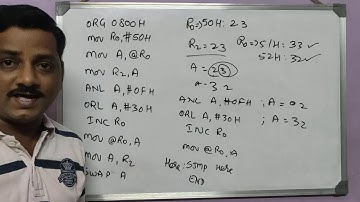 ORG 0800H
mov R0,#50H
mov A,@R0
mov R2,A
ANL A,#0FH
ORL A,#30H
INC R0
mov @R0,A
mov A,R2
SWAP A
R0→50H: 23
R2=23 R0→51H: 33✓
52H: 32✓
A = 23
A=32
ANL A,#0FH ; A=02
ORL A,#30H ; A=32
INC R0
mov @R0,A
Here: SJMP Here
END